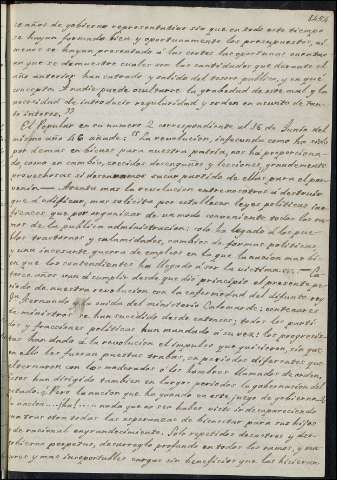 se años de gobierno representativo sin que en todo este tiempo
se hayan formado bien y oportunamente los presupuestos, ni
menos se hayan presentado á las cortes las oportunas cuentas
en que se demuestre cuales son las cantidades que durante el
año anterior han entrado y salido del tesoro público, y en qué
concepto. A nadie puede ocultarse la gravedad de este mal y la
necesidad de introducir regularidad y orden en asunto de tan-
to interes."
El Popular en su numero 2 correspondiente al 16 de Junio del
mismo año 46 añade: "La revolucion, infecunda como ha sido
por demas en bienes para nuestra patria, nos ha proporciona-
do, como en cambio, crecidos desengaños y lecciones, grandemente
provechosas si deseamos sacar partido de ellas para el por-
venir — Atenta mas la revolucion entre nosotros á destruir
que á edificar, mas solicita por establecer leyes politicas
que por organizar de un modo conveniente todos los ra-
mos de la pública administracion; solo ha legado á los pue-
blos trastornos y calamidades, cambios de formas politicas,
y una incesante guerra de empleos en la que la nacion mas bi-
en que los contendientes ha llegado á ser la victima....
años van á cumplir desde que dio principio el presente pe-
riodo de nuestra revolucion con la enfermedad del difunto rey
Dn. Fernando y la caida del ministerio Calomarde: centenares
de ministros se han sucedido desde entonces; todos los parti-
dos y fracciones politicas han mandado á su vez: los progresis-
tas han dado á la revolucion el impulso que quisieron, sin que
en ello les fueran puestas trabas, en periodos diferentes que
alternaron con los moderados ó los hombres llamados de orden,
estos han dirigido tambien en largos periodos la gobernacion del
estado. ¿Pero la nacion que ha ganado en este juego de gobierno? La
nacion..... ¡ha!.... nada que no sea haber visto ir desapareciendo
una tras otra todas las esperanzas de bienestar para sus hijos
de nacional engrandecimiento. Solo repetidos desastres y des-
gobierno perpetuo, desarreglo profundo en todos los ramos, y nu-
evas y mas insoportables cargas sin beneficios que las hicieran